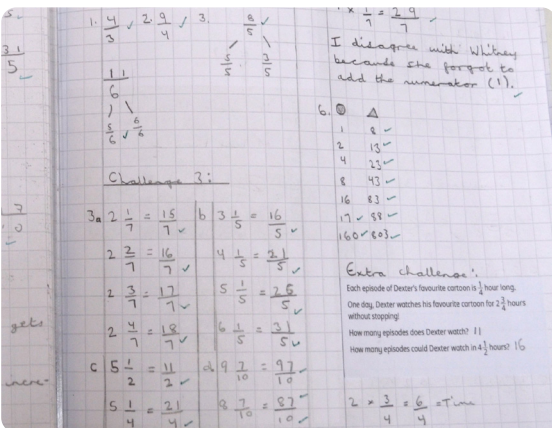 5.
31
5
7
0
gets
incre-
1. 4/3 2. 9/4 3. 8/5
5/5 3/5
11/6
5/6 6/6
Challenge 3:
3a 2 1/7 = 15/7
2 2/7 = 16/7
2 3/7 = 17/7
2 4/7 = 18/7
b 3 1/5 = 16/5
4 1/5 = 21/5
5 1/5 = 26/5
6 1/5 = 31/5
c 5 1/2 = 11/2
5 1/4 = 21/4
d 9 7/10 = 97/10
8 7/10 = 87/10
x 1/7 = 29/7
I disagree with Whitney
because she forgot to
add the numerator (1).
6.
1 8
2 13
4 23
8 43
16 83
17 88
160 803
Extra challenge:
Each episode of Dexter's favourite cartoon is 1/4 hour long.
One day, Dexter watches his favourite cartoon for 2 3/4 hours
without stopping!
How many episodes does Dexter watch? 11
How many episodes could Dexter watch in 4 1/2 hours? 16
2 x 3/4 = 6/4 = Time